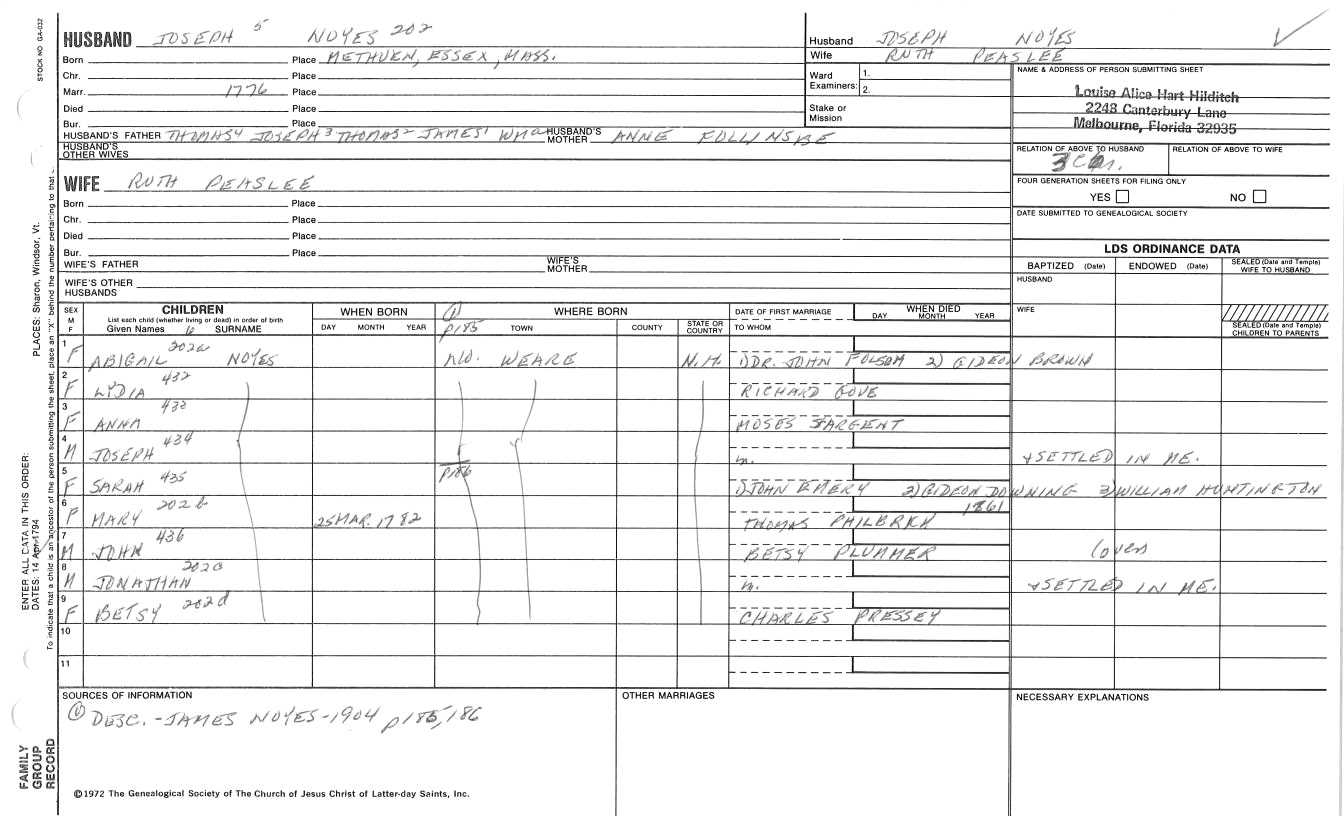 STOCK NO. GA-032
HUSBAND JOSEPH 5 NOYES 202
Born Place METHUEN, ESSEX, MASS.
Chr. Place
Marr. 1776 Place
Died Place
Bur. Place
HUSBAND'S FATHER THOMAS4 JOSEPH3 THOMAS2 JAMES1 WMa HUSBAND'S MOTHER ANNE FOLLINSBE
HUSBAND'S OTHER WIVES
Husband JOSEPH NOYES
Wife RUTH PEASLEE
Ward Examiners: 1.
2.
Stake or Mission
NAME & ADDRESS OF PERSON SUBMITTING SHEET
Louise Alice Hart Hilditch
2248 Canterbury Lane
Melbourne, Florida 32935
RELATION OF ABOVE TO HUSBAND RELATION OF ABOVE TO WIFE
FOUR GENERATION SHEETS FOR FILING ONLY
YES NO
DATE SUBMITTED TO GENEALOGICAL SOCIETY
WIFE RUTH PEASLEE
Born Place
Chr. Place
Died Place
Bur. Place
WIFE'S FATHER WIFE'S MOTHER
WIFE'S OTHER HUSBANDS
LDS ORDINANCE DATA
BAPTIZED (Date) ENDOWED (Date) SEALED (Date and Temple) WIFE TO HUSBAND
HUSBAND
WIFE
SEALED (Date and Temple) CHILDREN TO PARENTS
SEX M F
CHILDREN
List each child (whether living or dead) in order of birth
Given Names SURNAME
WHEN BORN
DAY MONTH YEAR
(1) p185
WHERE BORN
TOWN COUNTY STATE OR COUNTRY
DATE OF FIRST MARRIAGE
TO WHOM
WHEN DIED
DAY MONTH YEAR
1 F ABIGAIL 202a NOYES NO. WEARE N.H. 1) DR. JOHN FOLSOM 2) GIDEON BROWN
2 F LYDIA 432 RICHARD GOVE
3 F ANNA 433 MOSES SARGENT
4 M JOSEPH 434 m. + SETTLED IN ME.
5 F SARAH 435 p186 1) JOHN EMERY 2) GIDEON DOWNING 3) WILLIAM HUNTINGTON
6 F MARY 202b 25 MAR. 1782 THOMAS PHILBRICK 1861
7 M JOHN 436 BETSY PLUMMER (over)
8 M JONATHAN 202c m. + SETTLED IN ME.
9 F BETSY 202d CHARLES PRESSEY
10
11
SOURCES OF INFORMATION
(1) DESC. - JAMES NOYES - 1904 p185, 186
OTHER MARRIAGES
NECESSARY EXPLANATIONS
©1972 The Genealogical Society of The Church of Jesus Christ of Latter-day Saints, Inc.
ENTER ALL DATA IN THIS ORDER:
DATES: 14 Apr 1794
PLACES: Sharon, Windsor, Vt.
To indicate that a child is an ancestor of the person submitting the sheet, place an "X" behind the number pertaining to that
FAMILY GROUP RECORD